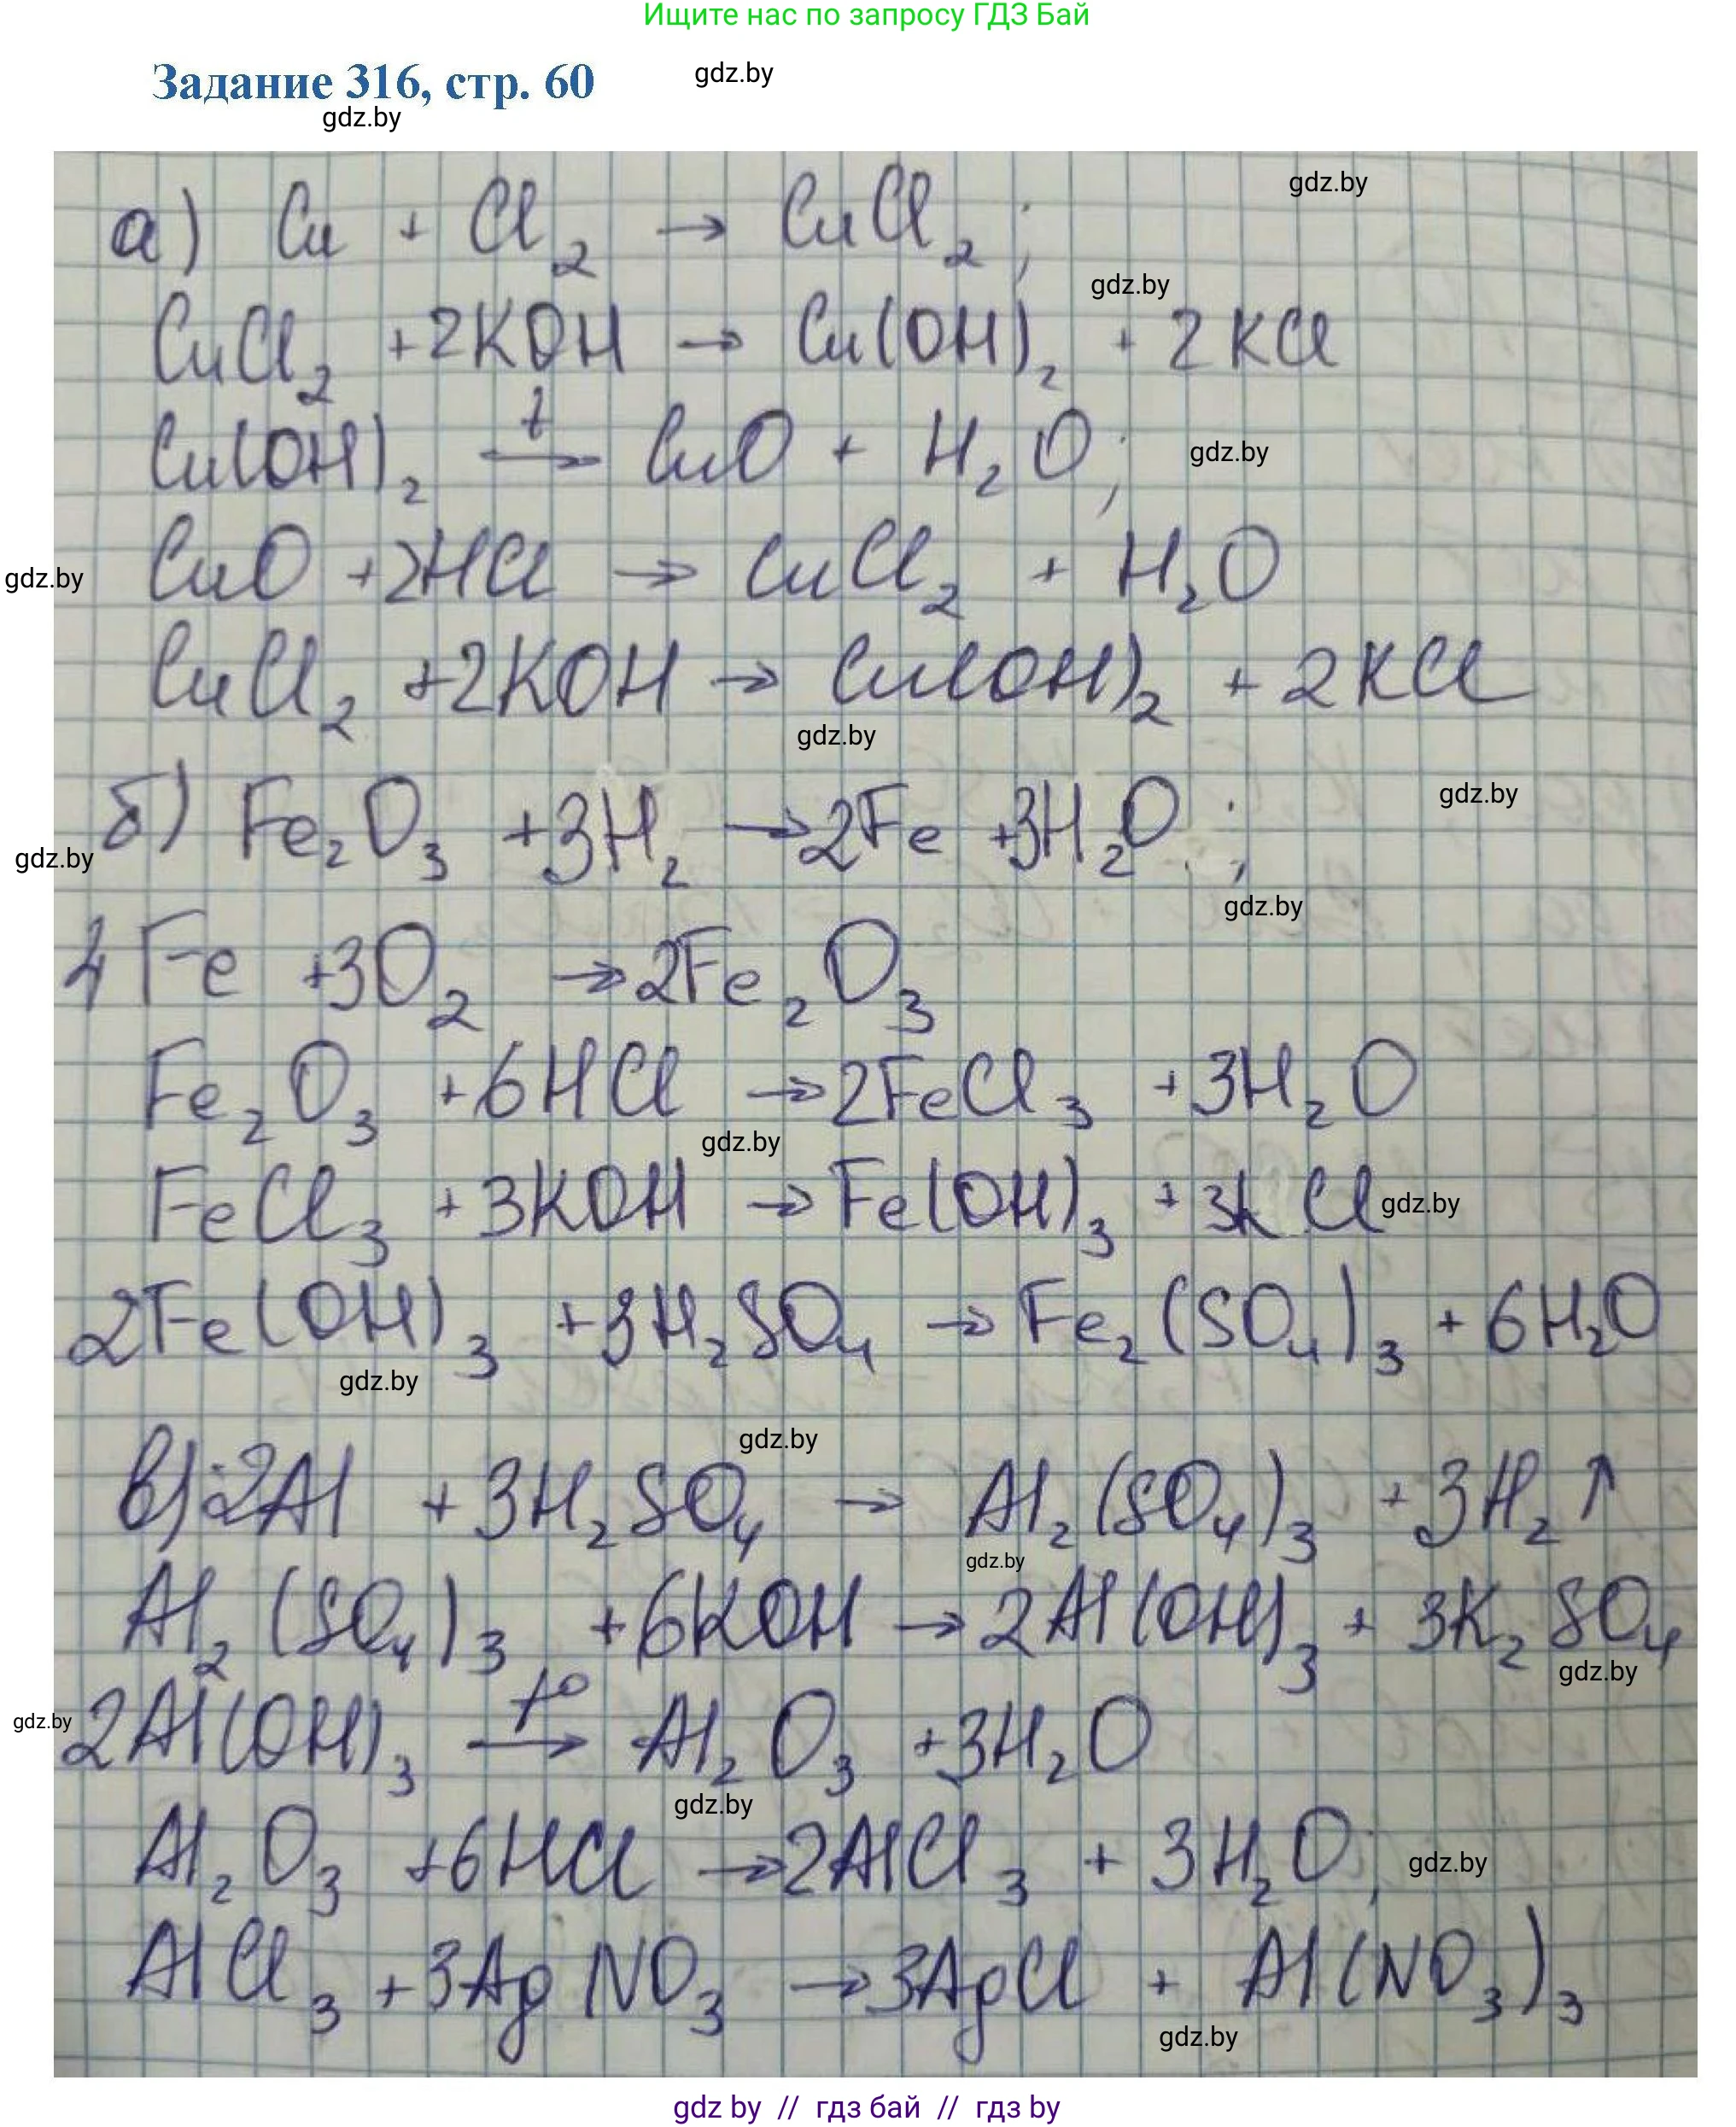 Ищите нас по запросу ГДЗ Бай
Задание 316, стр. 60
gdz.by
gdz.by
gdz.by
а) Cu + Cl₂ → CuCl₂;
gdz.by
CuCl₂ +2KOH → Cu(OH)₂ + 2KCl
Cu(OH)₂ t→ CuO + H₂O;
gdz.by
CuO +2HCl → CuCl₂ + H₂O
gdz.by
CuCl₂ +2KOH → Cu(OH)₂ + 2KCl
gdz.by
gdz.by
б) Fe₂O₃ +3H₂ → 2Fe +3H₂O;
gdz.by
gdz.by
4Fe +3O₂ → 2Fe₂O₃
Fe₂O₃ +6HCl → 2FeCl₃ +3H₂O
gdz.by
FeCl₃ +3KOH → Fe(OH)₃ +3KCl
gdz.by
2Fe(OH)₃ +3H₂SO₄ → Fe₂(SO₄)₃ +6H₂O
gdz.by
gdz.by
в) 2Al +3H₂SO₄ → Al₂(SO₄)₃ +3H₂↑
gdz.by
Al₂(SO₄)₃ +6KOH → 2Al(OH)₃ + 3K₂SO₄
gdz.by
gdz.by
2Al(OH)₃ t°→ Al₂O₃ +3H₂O
gdz.by
Al₂O₃ +6HCl → 2AlCl₃ + 3H₂O;
gdz.by
AlCl₃ +3AgNO₃ → 3AgCl + Al(NO₃)₃
gdz.by
gdz by // гдз бай // гдз by